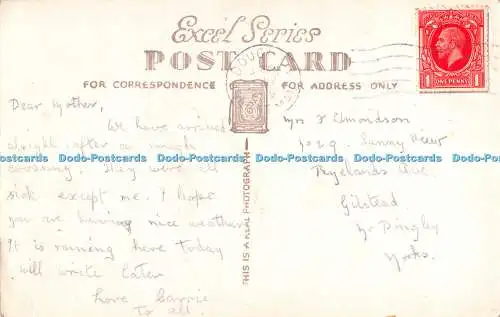 Excel Series
POST CARD
FOR CORRESPONDENCE
FOR ADDRESS ONLY
POSTAGE REVENUE
ONE PENNY
1 1
THIS IS A REAL PHOTOGRAPH
Dear Mother,
We have arrived
alright after a rough
crossing. They were all
sick except me. I hope
you are having nice weather
It is raining here today
will write later
Love Carrie
To all.
Mrs F Edmondson
Sunny View
Ryelands Ave.
Gilstead
Nr Bingley
Yorks.
Dodo-Postcards Dodo-Postcards Dodo-Postcards Dodo-Postcards Dodo-Postcards